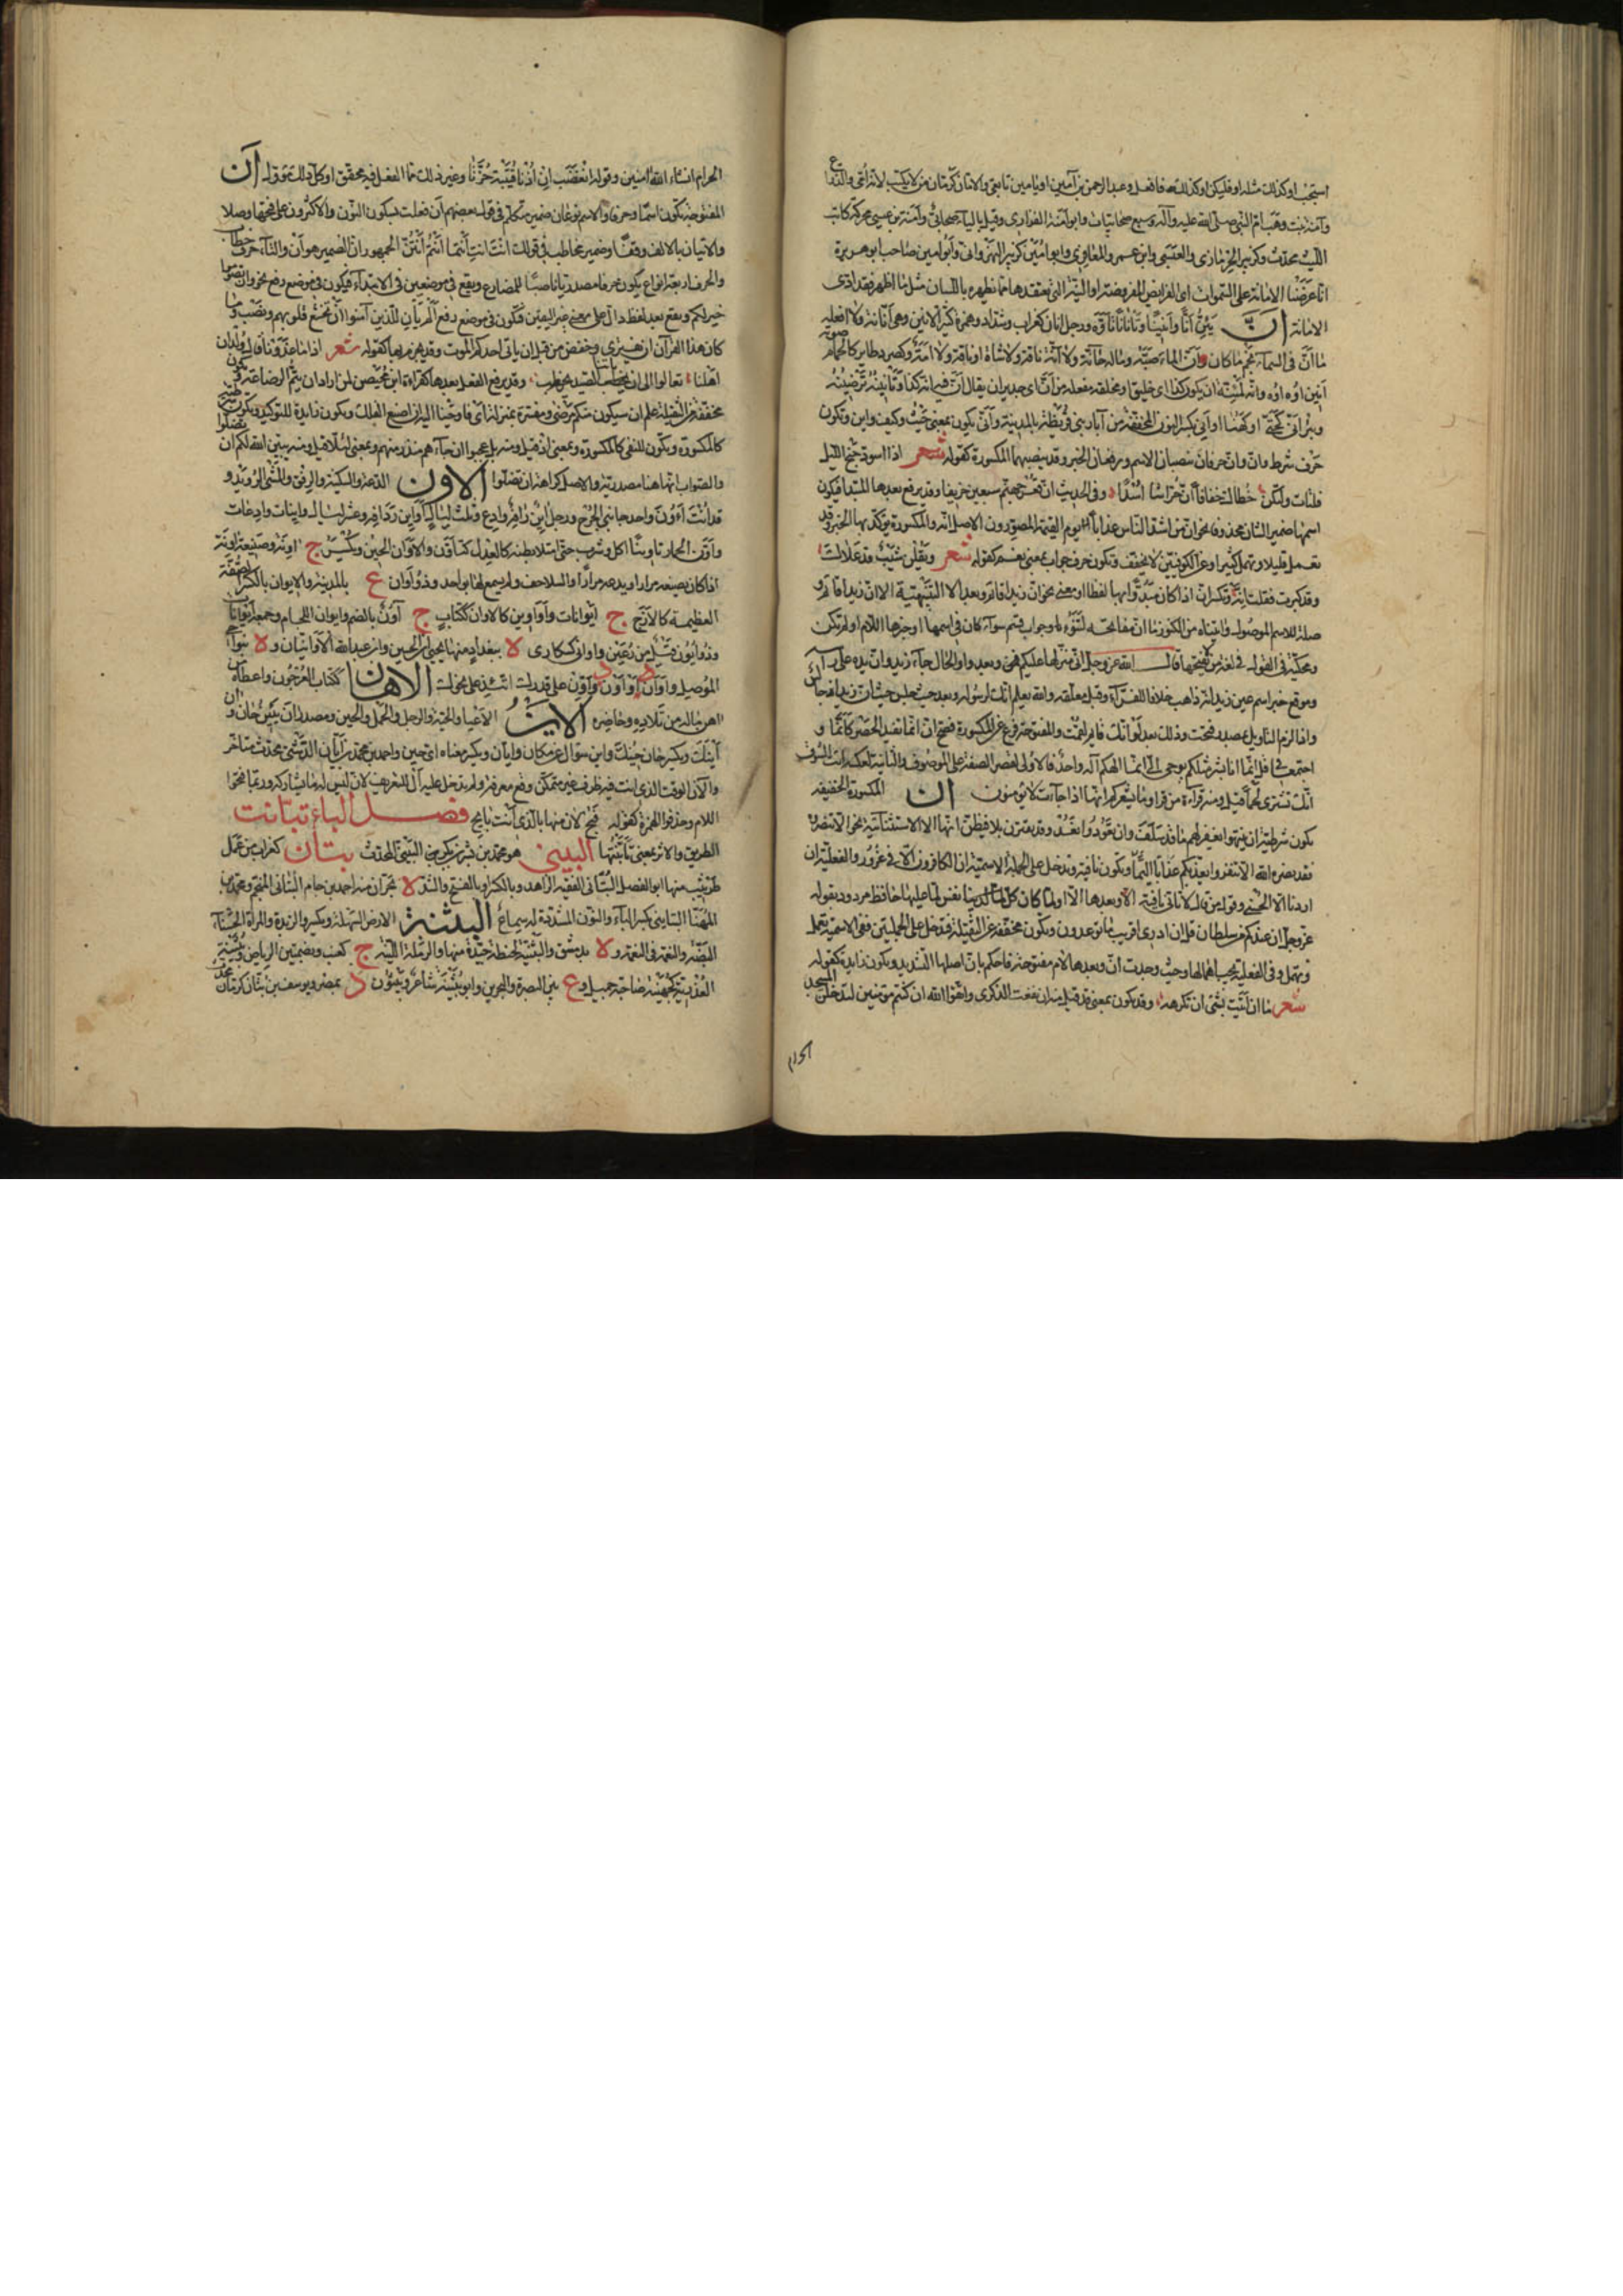 استجب او كذلك مثله او فليكن او كذلك فافعل وعبد الرحمن بن آمين او يامين تابعي والامان كرمان من لا يكتب لانه امي والزراع
وآمنة بنت وهب ام النبي صلى الله عليه وآله وسبع صحابيات وابو آمنة الفزاري وقيل بالياء صحابي وآمنة بن عيسى محركة كاتب
الليث محدث وكزبير الحرمازي والعتيبي وابن عمرو المعافري وابو امين كزبير البهراني وابو امين صاحب ابو هريرة
انا عرضنا الامانة على السموات اي الفرائض المفروضة او النية التي يعتقدها مما يظهره باللسان مثل ما اظهره فقد ادى
الامانة أنّ يئنّ أنّا وأنينا وأنانا تأوّه ورجل أنان كغراب وشداد وهمزة كثير الانين وهي أنانة ولا افعله
ما أنّ في السماء نجم ما كان وأنّ الماء صبّه وماله حانّة ولا آنّة ناقة ولا شاة او ناقة ولا امة وكصرد طاير كالحمام صوته
أنين اوه اوه وانه لمئنة ان يكون كذا اي خليق او مخلقة مفعلة من أنّ اي جدير ان يقال فيه انه كذا وتأننته ترضيته
وبئر أنّى كحتى او كهنا او أني بكسر النون المخففة من آبار بني قريظة بالمدينة وأنّى تكون بمعنى حيث وكيف واين وتكون
حرف شرط وانّ وانّ حرفان ينصبان الاسم ويرفعان الخبر وقد ينصبهما المكسورة كقوله شعر اذا اسود جنح الليل
فلتات ولتكن خطاك خفافا انّ حراسنا اسدا وفي الحديث ان قعر جهنم سبعين خريفا وقد يرفع بعدها المبتدا فيكون
اسمها ضمير الشان محذوفا نحو ان من اشد الناس عذابا يوم القيمة المصورون الاصل انه والمكسورة يؤكد بها الخبر وقد
تعمل قليلا وتهمل كثيرا وعن الكوفيين لا تخفف وتكون حرف جواب بمعنى نعم كقوله شعر ويقلن شيب قد علاك
وقد كبرت فقلت انه وتكسر انّ اذا كان مبدوّا بها لفظا او معنى نحو ان زيدا قائم وبعد الا التنبيهية الا ان زيدا قائم و
صلة للاسم الموصول وآتيناه من الكنوز ما ان مفاتحه لتنوء وجواب قسم سواء كان في اسمها او خبرها اللام او لم تكن
ومحكية في القول في لغة من لا يفتحها قال الله عز وجل اني منزلها عليكم وبعد واو الحال جاء زيد وان يده على رأسه
وموقع خبر اسم عين زيد انه ذاهب خلافا للفراء وقبل معلقة والله يعلم انك لرسوله وبعد حيث اجلس حيث ان زيدا جالس
واذا لزم التاويل بمصدر فتحت وذلك بعد لو لو انك قائم لقمت والمفتوحة فرع عن المكسورة فصح ان انما تفيد الحصر كانما و
اجتمعا في قل انما انا بشر مثلكم يوحى الي انما الهكم آله واحد فالاولى لقصر الصفة على الموصوف والثانية لعكسه
انك تشتري لحما قيل ومنه قراءة من قرا وما يشعركم انها اذا جاءت لا يؤمنون ان المكسورة الخفيفة
تكون شرطية ان ينتهوا يغفر لهم ما قد سلف وان تعودوا نعد وقد يقترن بلا فيظن انها الا الاستثنائية نحو الا تنصروه
فقد نصره الله الا تنفروا يعذبكم عذابا اليما وتكون نافية وتدخل على الجملة الاسمية ان الكافرون الا في غرور والفعلية ان
اردنا الا الحسنى وقول من قال لا تاتي نافية الا وبعدها الا او لما كان كل نفس لما عليها حافظ مردود بقوله
عز وجل ان عندكم من سلطان قل ان ادري اقريب ما توعدون وتكون مخففة عن الثقيلة فتدخل على الجملتين ففي الاسمية تعمل
وتهمل وفي الفعلية يجب اهمالها وحيث وجدت ان وبعدها لام مفتوحة فاحكم بان اصلها التشديد وتكون زايدة كقوله
شعر ما ان اتيت بشئ انت تكرهه وقد تكون بمعنى قد قيل منه ان نفعت الذكرى واتقوا الله ان كنتم مؤمنين لتدخلن المسجد
الحرام
الحرام ان شاء الله آمنين وقوله اتغضب ان اذنا قتيبة حزتا وغير ذلك مما الفعل فيه محقق او كل ذلك مؤول أن
المفتوحة تكون اسما وحرفا والاسم نوعان ضمير متكلم في قول بعضهم أن فعلت بسكون النون والاكثرون على فتحها وصلا
والاتيان بالالف وقفا وضمير مخاطب في قولك انت انت انتما انتم انتن الجمهور ان الضمير هو ان والتاء حرف خطاب
والحرف اربعة انواع يكون حرفا مصدريا ناصبا للمضارع ويقع في موضعين في الابتداء فيكون في موضع رفع نحو وان تصوموا
خير لكم ويقع بعد لفظ دال على معنى غير اليقين فتكون في موضع رفع الم يأن للذين آمنوا ان تخشع قلوبهم ونصب وما
كان هذا القرآن ان يفترى وخفض من قبل ان ياتي احدكم الموت وقد يجزم بها كقوله شعر اذا ما غدونا قال ولدان
اهلنا تعالوا الى ان ياتنا الصيد نحطب وقد يرفع الفعل بعدها كقراءة ابن محيصن لمن اراد ان يتم الرضاعة وتكون
مخففة من الثقيلة علم ان سيكون منكم مرضى ومفسرة بمنزلة اي فاوحينا اليه ان اصنع الفلك وتكون زايدة للتوكيد وتكون شرطية
كالمكسورة وتكون للنفي كالمكسورة وبمعنى اذ قيل ومنه بل عجبوا ان جاءهم منذر منهم وبمعنى لئلا قيل ومنه يبين الله لكم ان تضلوا
والصواب انها هنا مصدرية والاصل كراهة ان تضلوا الاون الدعة والسكينة والرفق والمشي الرويد و
قد أنت اؤون اونا واحد جانبي الخرج ورجل آين رافه وادع وثلث ليال اواين روافه وعشر ليال آينات وادعات
وأوّن الحمار تاوينا اكل وشرب حتى امتلا بطنه كالعدل كتأوّن والاوان الحين ويكسر ج اونة وصنيعه اونة
اذا كان يصنعه مرارا ويدعه مرارا والسلاحف ولم يسمع لها بواحد وذو اوان ع بالمدينة والايوان بالكسر الصفة
العظيمة كالازج ج ايوانات واواوين كالاوان ككتاب ج اون بالضم وايوان اللجام وجمعه ايوانات
وذو ايون قيل من رعين واوانى كسكارى لا ببغداد منها يحيى بن الحسين وابن عبد الله الاوانيان و لا بنواحي
الموصل واوان واوّن على قدرك اتئد على نحوك الاهان ككتاب العرجون واعطاه
اهن ماله من تلاده وحاضره الاين الاعياء والحية والرجل والحمل والحين ومصدر آن يئين حان و
أينك ويكسر حان حينك واين سؤال عن مكان وايان ويكسر معناه اي حين واحمد بن محمد بن ايان الدشتي محدث متاخر
والآن الوقت الذي انت فيه ظرف غير متمكن وقع معرفة ولم تدخل عليه ال للتعريف لانه ليس له ما يشاركه وربما فتحوا
اللام وحذفوا الهمزة كقوله فبح لان منها بالذي انت بايح فصل الباء تبانت
الطريق والاثر بمعنى تأبنتها الببني هو محمد بن بشر بن بكر بن الببني المحدث بتان كغراب من عمل
طريثيث منها ابو الفضل البتاني الفقيه الزاهد وبالكسر او بالفتح والشد لا بحران منه احمد بن جابر البتاني المنجم ومحمد بن
المهنا البتايني بكسر الباء والنون المشددة له سماع البثنة الارض السهلة ويكسر والزبدة والمرأة الحسناء
البضة والنعمة في النعمة و لا بدمشق والبثنية لحنطة جيدة منها والرملة اللينة ج كعنب وبضمتين الرياض وبثينة
العذرية كجهينة صاحبة جميل و ع بين البصرة والبحرين وابو بثينة شاعر وبثون د بمصر ويوسف بن بثان كرمان محدث